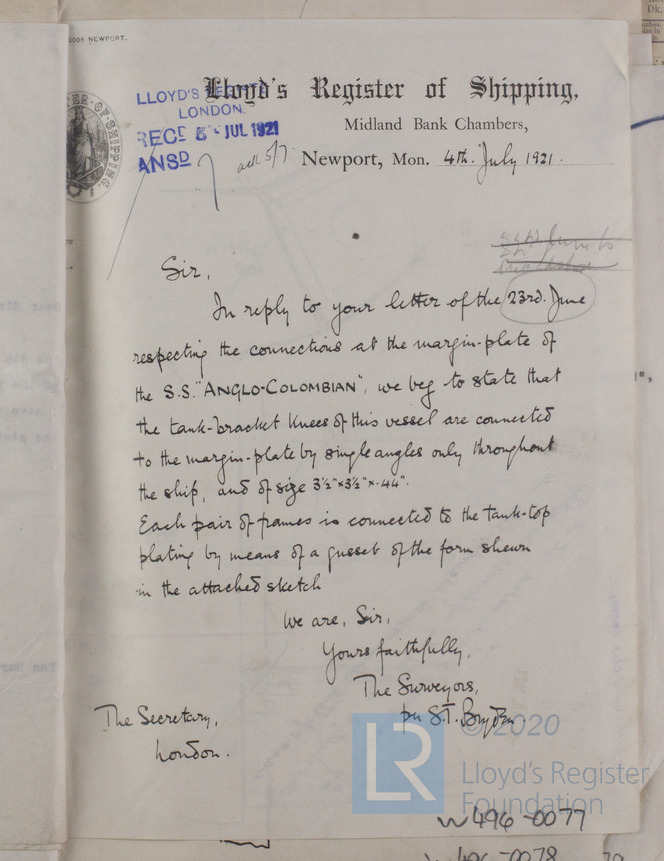 OOR NEWPORT.
Lloyd's Register of Shipping,
Midland Bank Chambers,
Newport, Mon. 4th. July 1921.
LLOYD'S
LONDON.
REC^D 5 - JUL 1921
ANS^D
ack 5/7.
Sir,
In reply to your letter of the 23rd. June
respecting the connections at the margin-plate of
the S.S. "ANGLO-COLOMBIAN", we beg to state that
the tank-bracket knees of this vessel are connected
to the margin-plate by single angles only throughout
the ship, and of size 3½"×3½"×.44".
Each pair of frames is connected to the tank-top
plating by means of a gusset of the form shewn
in the attached sketch
We are, Sir,
Yours faithfully,
The Surveyors,
per S.T. Bryden.
The Secretary,
London.
LR
© 2020
Lloyd's Register
Foundation
W496-0077
W496-0078